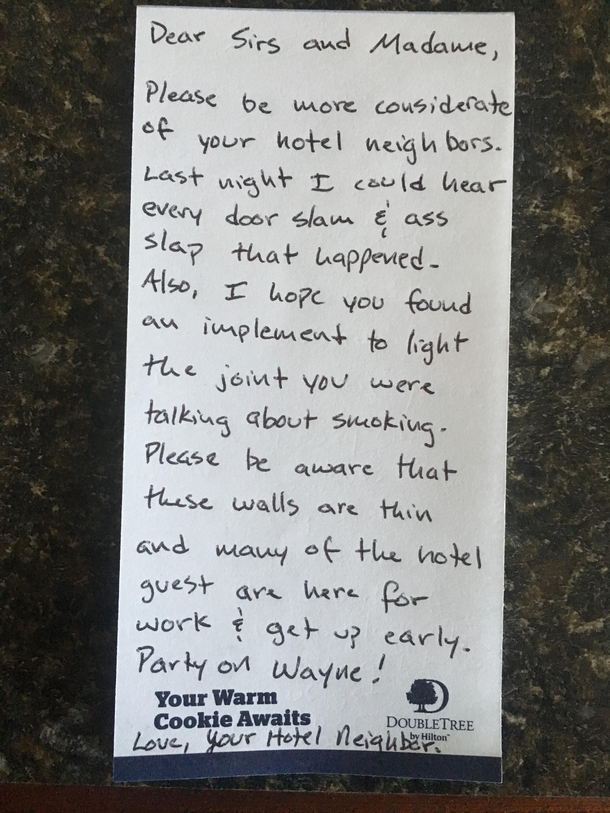 Dear Sirs and Madame,
Please be more considerate
of your hotel neighbors.
Last night I could hear
every door slam & ass
slap that happened.
Also, I hope you found
an implement to light
the joint you were
talking about smoking.
Please be aware that
these walls are thin
and many of the hotel
guest are here for
work & get up early.
Party on Wayne!
Your Warm
Cookie Awaits
DOUBLETREE
by Hilton™
Love, Your Hotel Neighbor.